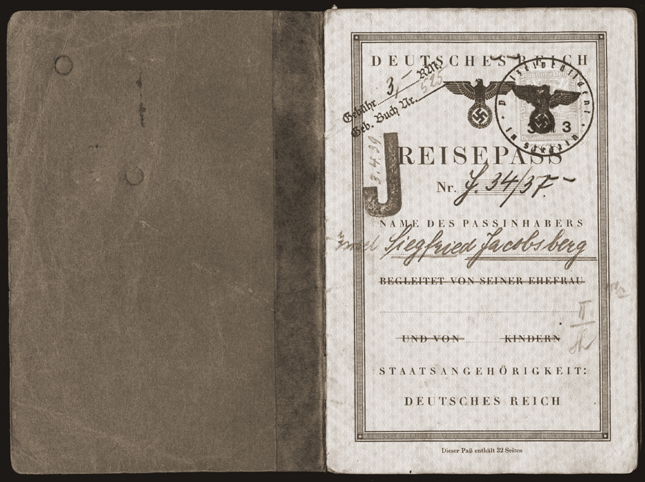 DEUTSCHES REICH
Gebühr 3,- RM.
Geb. Buch Nr.
J
REISEPASS
Nr. J. 34/37.-
NAME DES PASSINHABERS
Israel Siegfried Jacobsberg
BEGLEITET VON SEINER EHEFRAU
UND VON KINDERN
II
STAATSANGEHÖRIGKEIT:
DEUTSCHES REICH
Dieser Paß enthält 32 Seiten